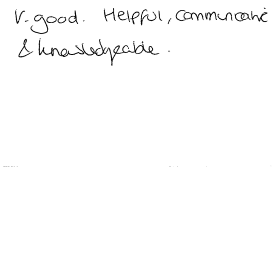 V. good. Helpful, communicative
& knowledgeable.